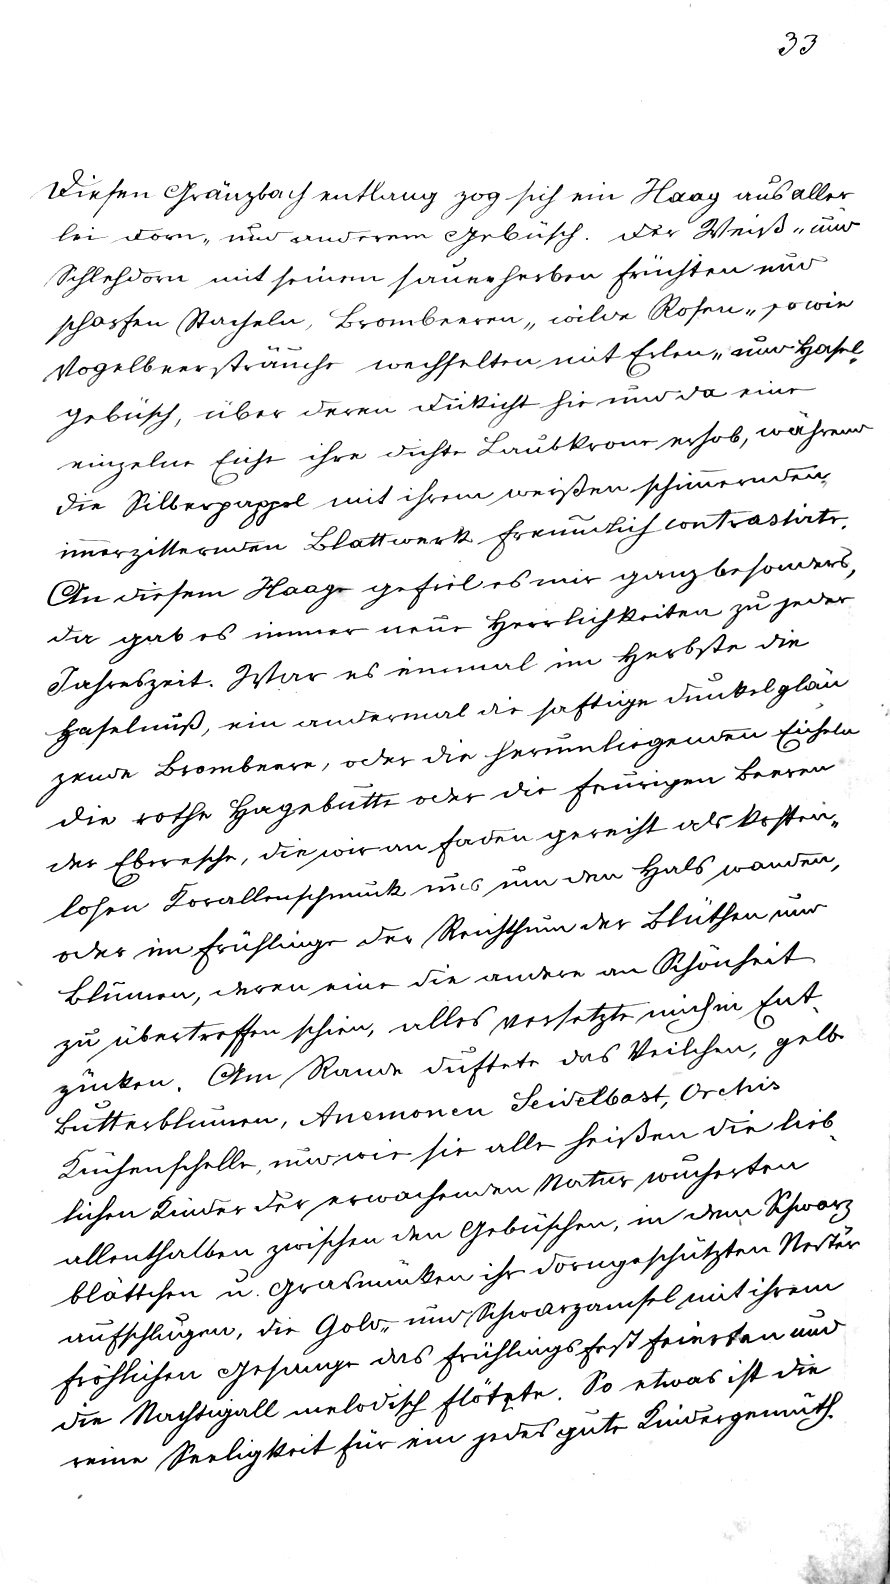 33
Diesen Gränzbach entlang zog sich ein Haag aus aller
lei Dorn- und anderem Gebüsch. Der Weiß- und
Schlehdorn mit seinen sauerherben Früchten und
scharfen Stacheln, Brombeeren-, wilde Rosen-, sowie
Vogelbeersträuche wechselten mit Erlen- und Hasel-
gebüsch, über deren Dickicht hie und da eine
einzelne Eiche ihre dichte Laubkrone erhob, während
die Silberpappel mit ihrem weißen schimmernden,
immerzitternden Blattwerk freundlich contrastirte.
An diesem Haage gefiel es mir ganz besonders,
da gab es immer neue Herrlichkeiten zu jeder
Jahreszeit. War es einmal im Herbste die
Haselnuß, ein andermal die saftige dunkelglän
zende Brombeere, oder die herumliegenden Eicheln
die rothe Hagebutte oder die feurigen Beeren
der Eberesche, die wir an Faden gereiht als kosten-
losen Korallenschmuck uns um den Hals wanden,
oder im Frühlinge der Reichthum der Blüthen und
Blumen, deren eine die andere an Schönheit
zu übertreffen schien, alles versetzte mich in Ent-
zücken. Am Rande duftete das Veilchen, gelbe
Butterblumen, Anemonen Seidelbast, Orchis
Küchenschelle, und wie sie alle heißen die lieb-
lichen Kinder der erwachenden Natur wucherten
allenthalben zwischen den Gebüschen, in dem Schwarz
blättchen u. Grasmücken ihr dorngeschützten Nester
aufschlugen, die Gold- und Schwarzamsel mit ihrem
fröhlichen Gesange das Frühlingsfest feierten und
die Nachtigall melodisch flötete. So etwas ist die
reine Seeligkeit für ein jedes gute Kindergemüth.